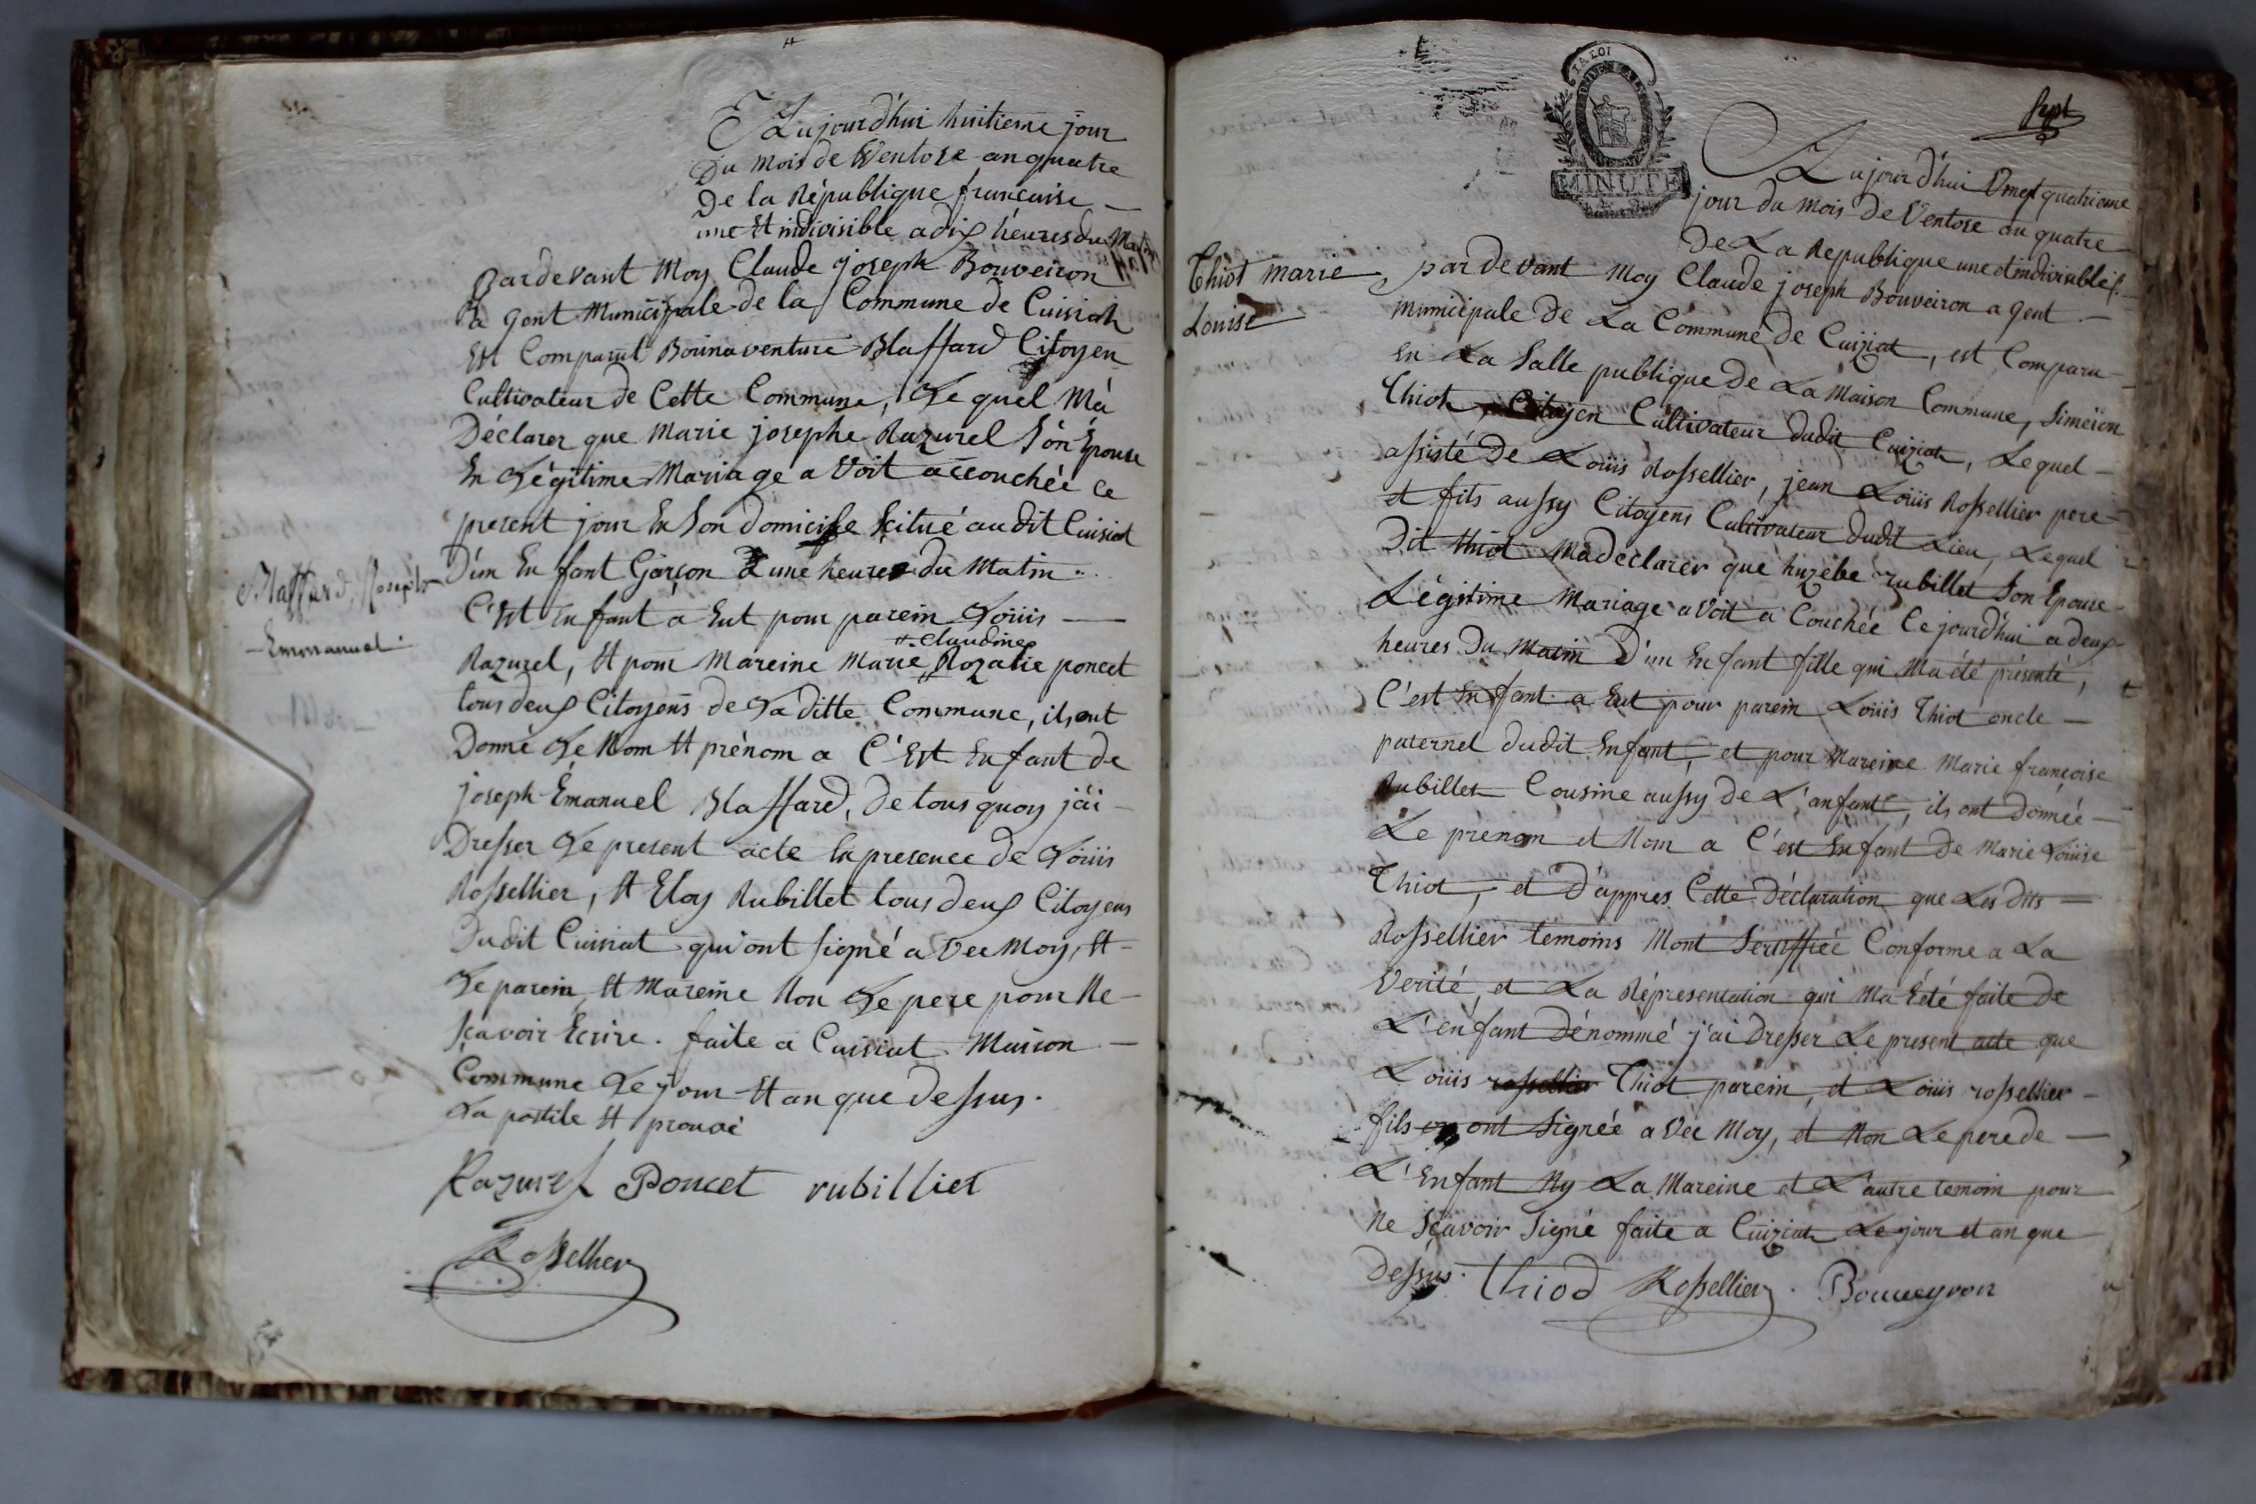 Aujourd'hui huitieme jour
Du mois de Ventose an quatre
De la République francaise
une Et indivisible a dix heures du Matin
Pardevant Moy Claude joseph Bouveiron
a gent Municipale de la Commune de Cuisiat
Est Comparut Bonnaventure Blaffard Citoyen
Cultivateur de Cette Commune, Le quel M'a
Déclarer que Marie josephe Razurel Son Epouse
En Légitime Mariage a Voit accouchée ce
present jour En Son domicile Scitué au dit Cuisiat
D'un En fant Garçon a une heure du Matin
Blaffard, Joseph
Emmanuel
C'Est En fant a Eut pour parein Loüis
+ Claudine
Razurel, Et pour Mareine Marie Rozalie poncet
tous deux Citoyens de La ditte Commune, ils ont
Donné Le Nom Et prénom a C'Est En fant de
joseph Emanuel Blaffard, De tous quoy j'ai
Dresser Le present acte En presence de Loüis
Rossellier, Et Eloy Rubillet tous deux Citoyens
Dudit Cuisiat qui ont signé a Vec Moy, Et
Le parein, Et Mareine Non Le pere pour Ne
sçavoir Ecrire. faite a Cuisiat Maison
Commune Le jour Et an que Dessus.
La postile Et prouvé
Razurel Poncet rubilliet
Rossellier
LA LOI
MINUTE
Sept
Aujourd'hui Vingt quatrieme
jour du mois de Ventose an quatre
De La Republique une et indivisible
Thiot marie
Louise
par devant Moy Claude joseph Bouveiron a gent
Municipale de La Commune de Cuiziat, est Comparu
En La Salle publique de La Maison Commune, Simeion
Thiot, Citoyen Cultivateur dudit Cuiziat, Lequel
assisté de Loüis Rossellier, jean Loüis Rossellier pere
et fils aussy Citoyens Cultivateur dudit Lieu, Lequel
Dit thiot Ma declarer que huzèbe rubillet Son Epouse
Légitime Mariage a Voit a Couchée Ce jourd'hui a deux
heures Du Matin D'un En fant fille qui Ma été présenté,
C'est En fant a Eut pour parein Loüis Thiot oncle
paternel dudit Enfant, et pour Mareine Marie françoise
Rubillet Cousine aussy de L'anfant, ils ont donnée
Le prenom et Nom a C'est Enfant De Marie Loüise
Thiot, et D'appres Cette Déclaration que Les dits
Rossellier temoins Mont Sertiffiée Conforme a La
Verité, et La Répresentation qui Ma Eété faite de
L'enfant Dénommé j'ai Dresser Le present acte que
Loüis Thiot parein, et Loüis rossellier
fils ont Signée a Vec Moy, et Non Le pere de
L'Enfant Ny La Mareine et L'autre temoin pour
Ne Sçavoir Signé faite a Cuiziat Le jour et an que
Dessus. Thiod Rossellier. Bouveyron